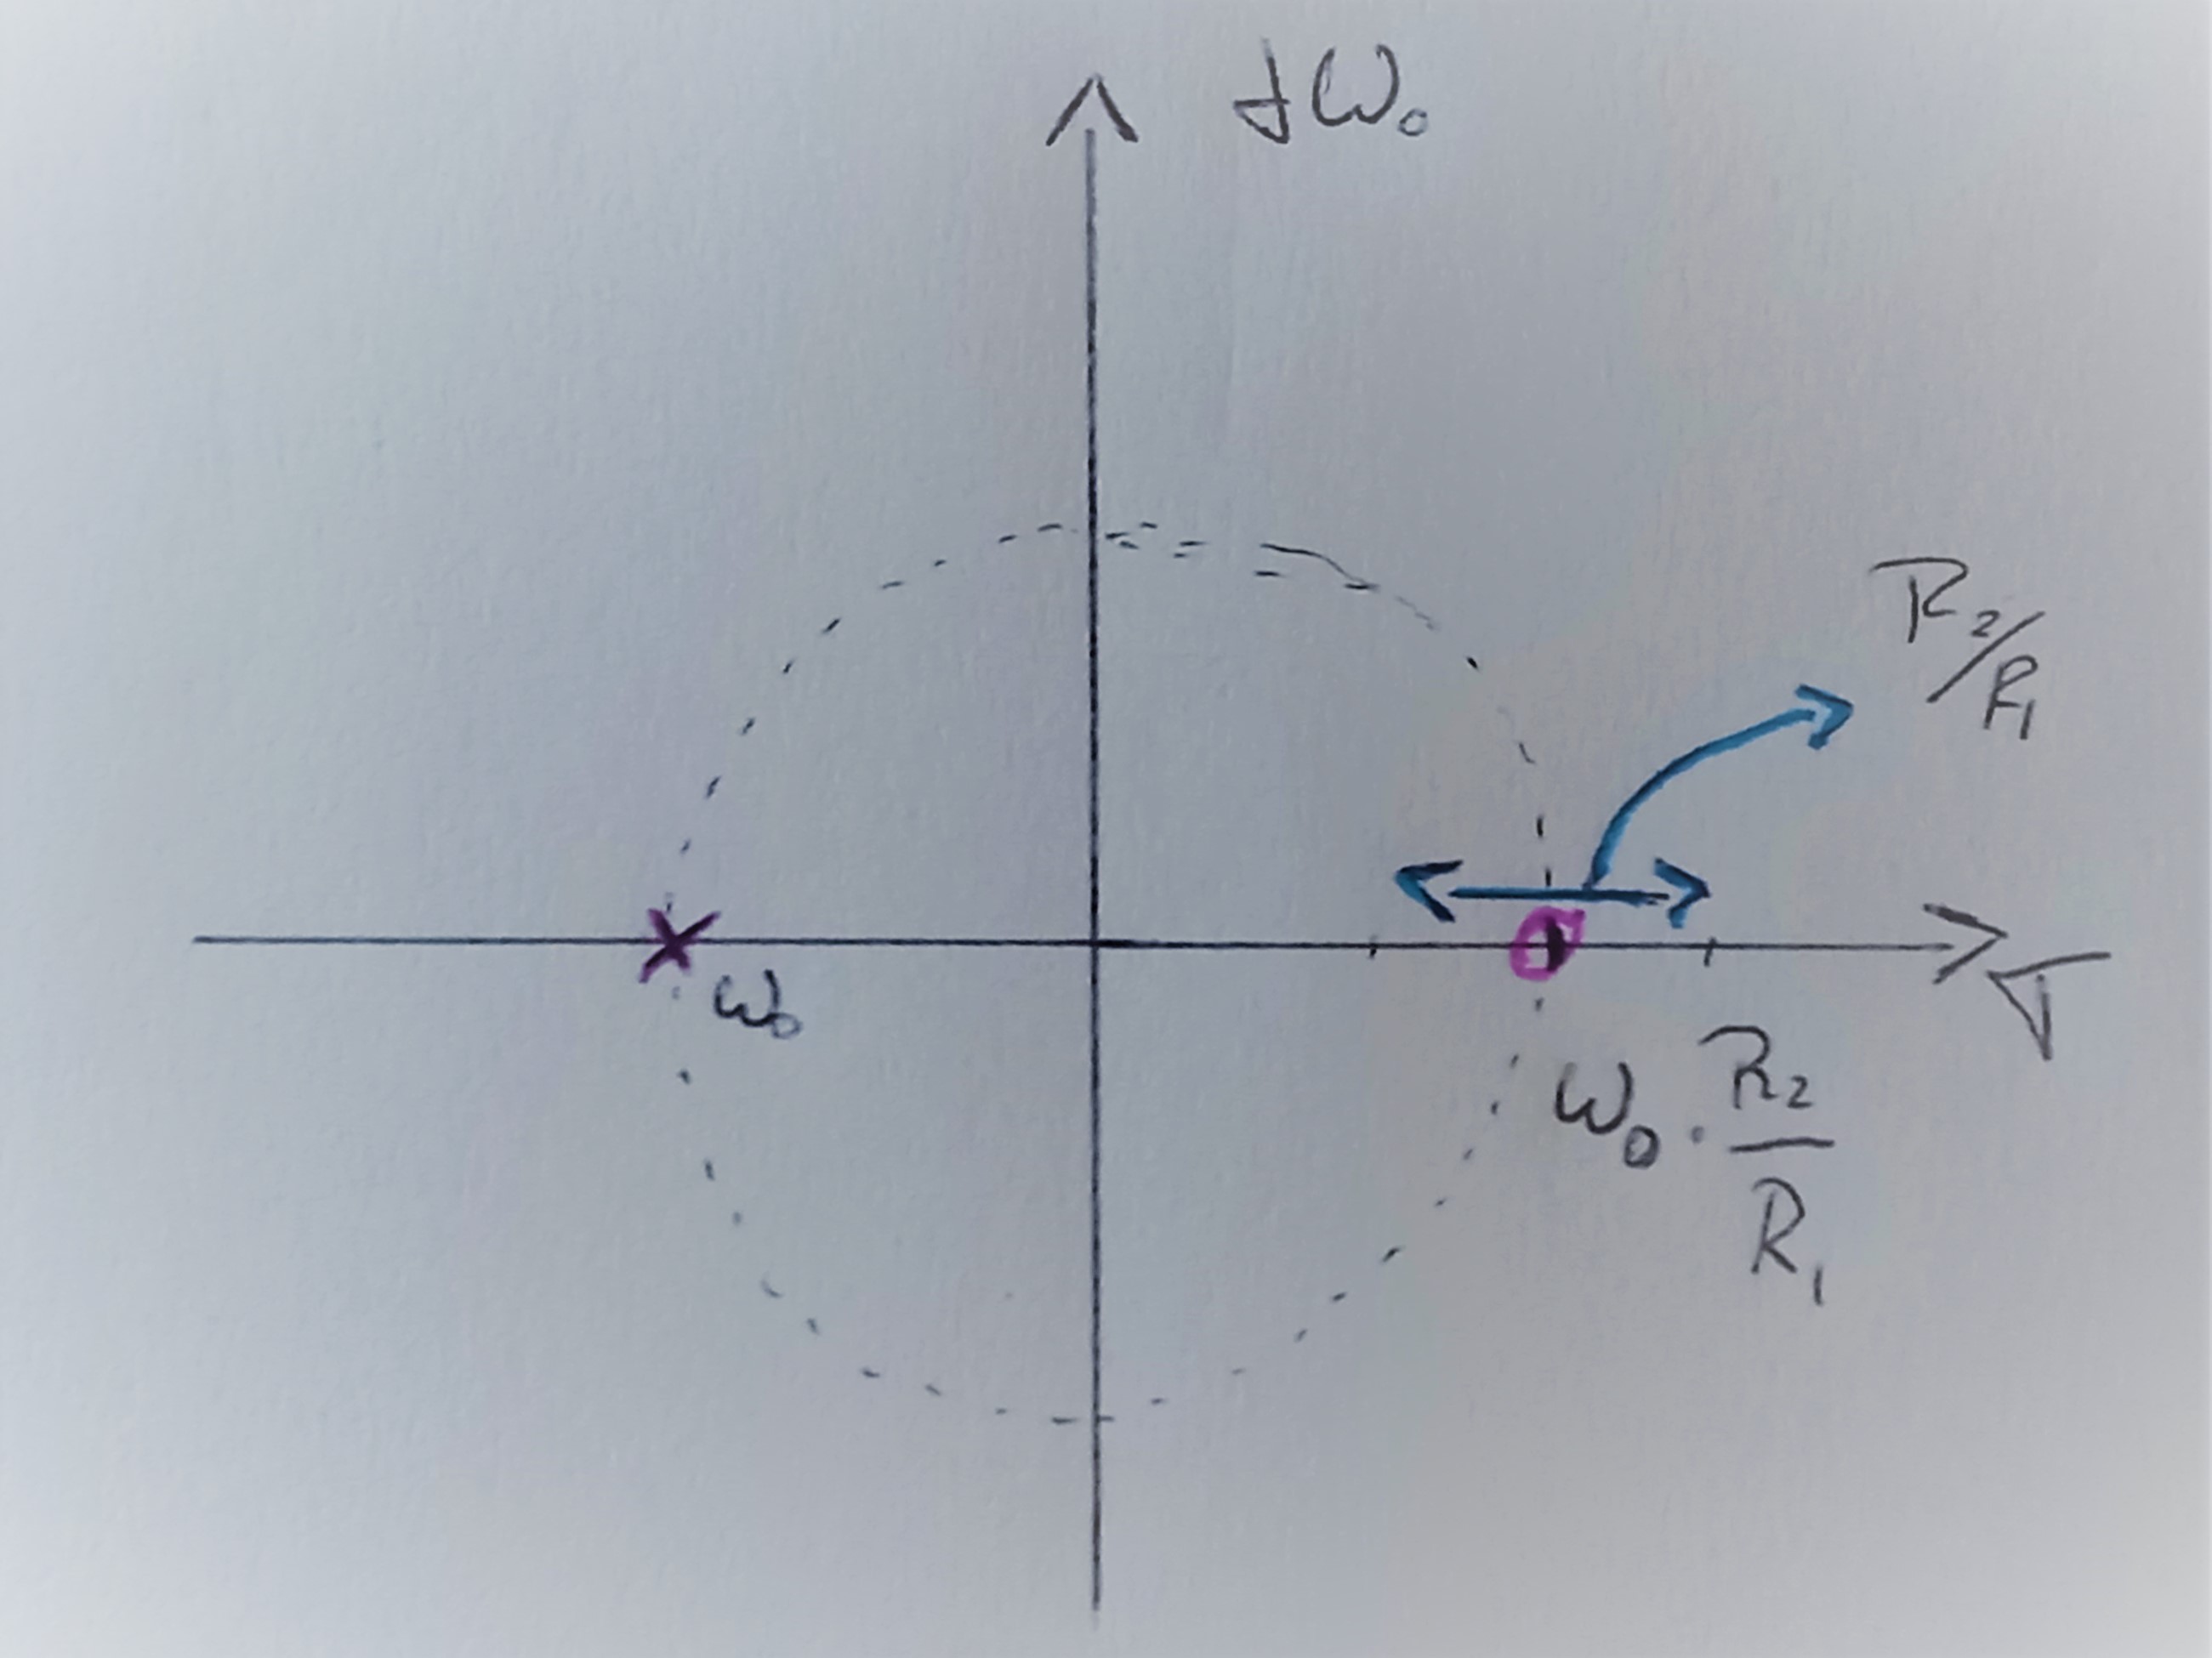 jω₀
R₂/R₁
ω₀
σ
ω₀ · R₂/R₁